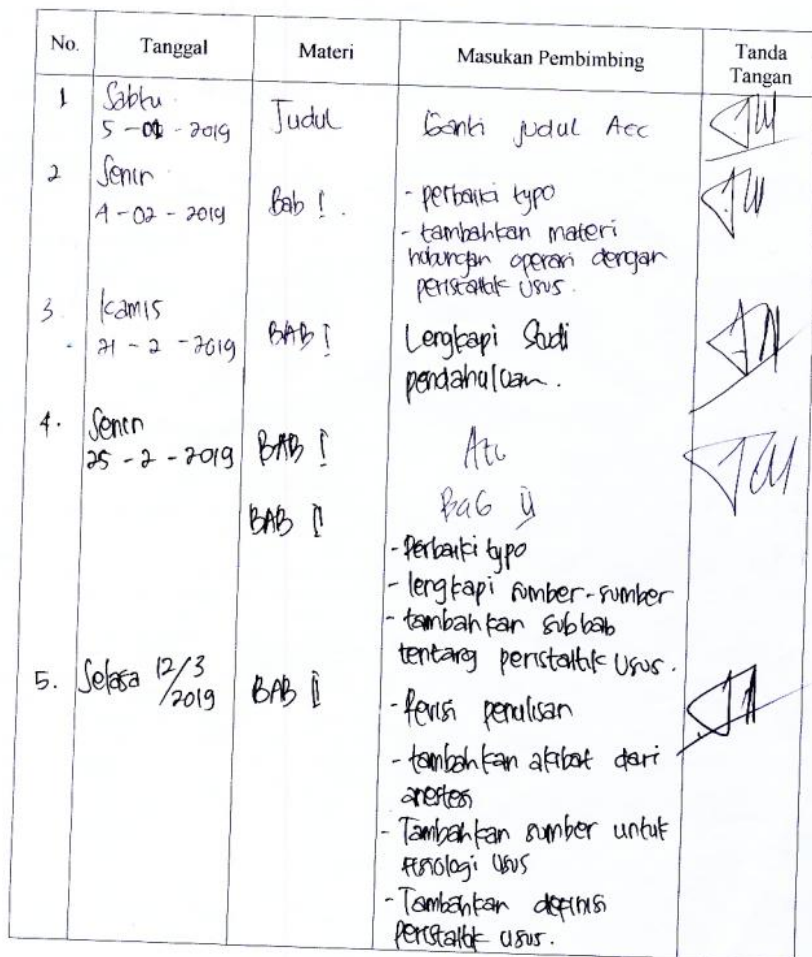 No. Tanggal Materi Masukan Pembimbing Tanda Tangan
1 Sabtu
5 - 01 - 2019 Judul Ganti judul Acc
2 Senin
4 - 02 - 2019 Bab I. - perbaiki typo
- tambahkan materi
hubungan operasi dengan
peristaltik usus.
3. Kamis
21 - 2 - 2019 BAB I Lengkapi Studi
pendahuluan.
4. Senin
25 - 2 - 2019 BAB I Acc
BAB II Bab II
- Perbaiki typo
- lengkapi sumber-sumber
- tambahkan subbab
tentang peristaltik usus.
5. Selasa 12/3
/2019 BAB II - Revisi penulisan
- tambahkan akibat dari
anestesi
- Tambahkan sumber untuk
fisiologi usus
- Tambahkan definisi
peristaltik usus.